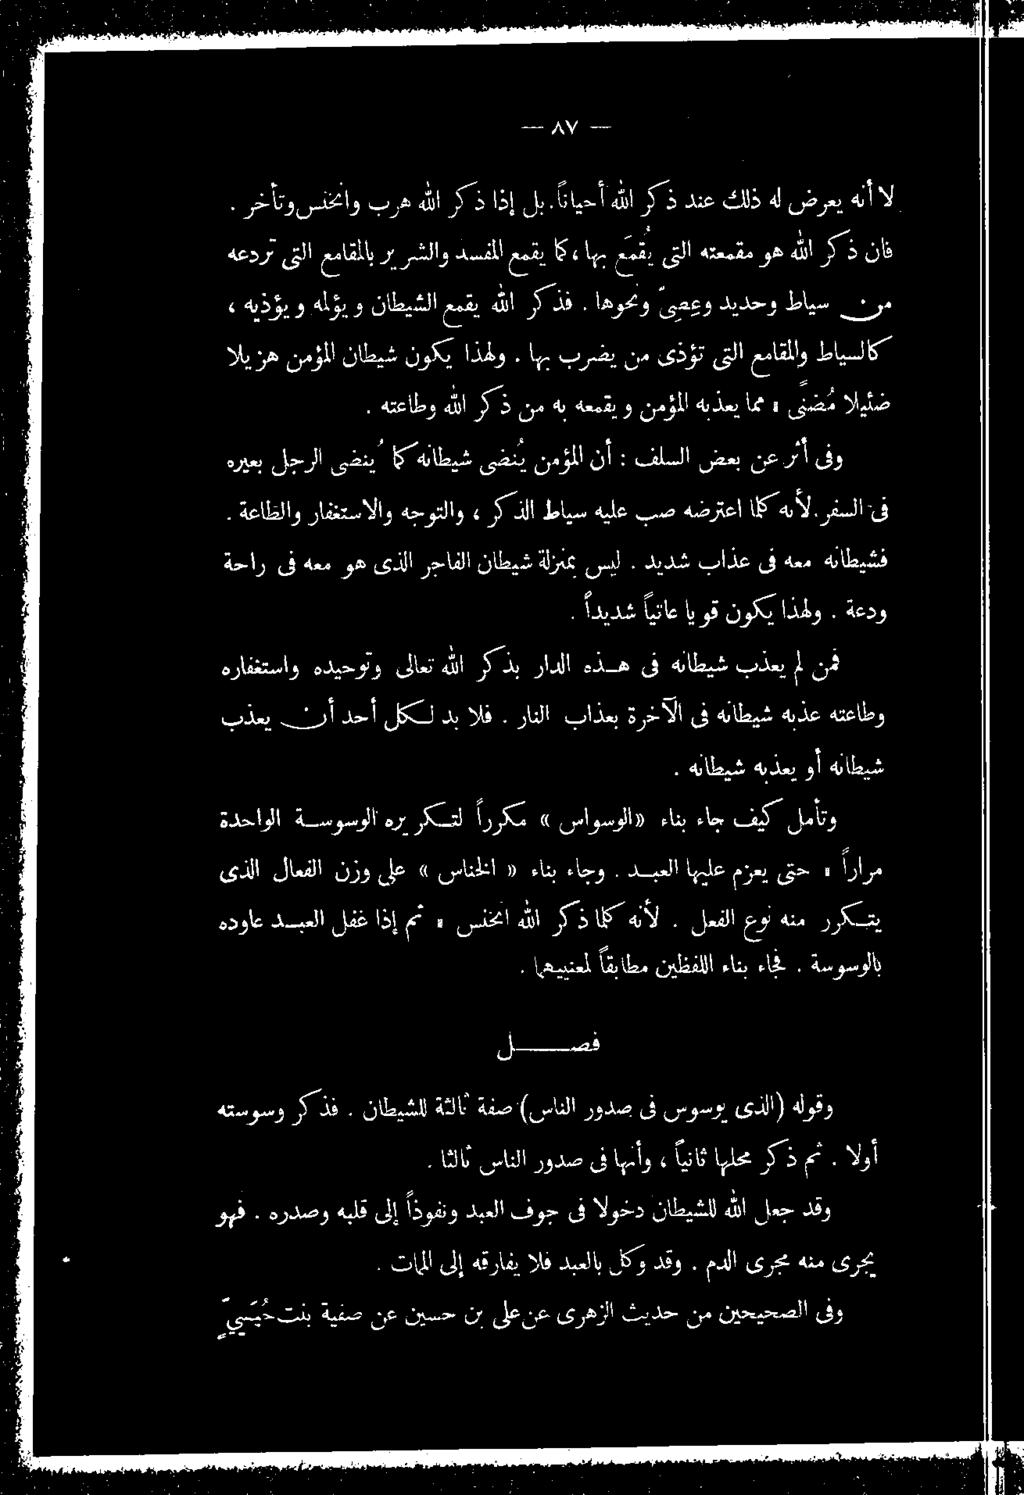 — ٨٧ —
لا أنه يعرض له ذلك عند ذكر الله أحياناً. بل إذا ذكر الله هرب وانخنس وتأخر .
فان ذكر الله هو مقمعته التى يُقمَع بها ، كما يقمع المفسد والشرير بالمقامع التى تردعه
من سياط وحديد وعِصِىّ ونحوها . فذكر الله يقمع الشيطان ويؤلمه ويؤذيه ،
كالسياط والمقامع التى تؤذى من يضرب بها . ولهذا يكون شيطان المؤمن هزيلا
ضئيلا مُضنًى ، مما يعذبه المؤمن ويقمعه به من ذكر الله وطاعته .
وفى أثر عن بعض السلف : أن المؤمن يُنضى شيطانه كما ينضى الرجل بعيره
فى السفر . لأنه كلما اعترضه صب عليه سياط الذكر ، والتوجه والاستغفار والطاعة .
فشيطانه معه فى عذاب شديد . ليس بمنزلة شيطان الفاجر الذى هو معه فى راحة
ودعة . ولهذا يكون قويا عاتياً شديداً .
فمن لم يعذب شيطانه فى هذه الدار بذكر الله تعالى وتوحيده واستغفاره
وطاعته عذبه شيطانه فى الآخرة بعذاب النار . فلا بد لكل أحد أن يعذب
شيطانه أو يعذبه شيطانه .
وتأمل كيف جاء بناء « الوسواس » مكرراً لتكريره الوسوسة الواحدة
مراراً ، حتى يعزم عليها العبد . وجاء بناء « الخناس » على وزن الفعال الذى
يتكرر منه نوع الفعل . لأنه كلما ذكر الله انخنس ، ثم إذا غفل العبد عاوده
بالوسوسة . فجاء بناء اللفظين مطابقاً لمعنييهما .
فصل
وقوله (الذى يوسوس فى صدور الناس) صفة ثالثة للشيطان . فذكر وسوسته
أولا . ثم ذكر محلها ثانياً ، وأنها فى صدور الناس ثالثا .
وقد جعل الله للشيطان دخولا فى جوف العبد ونفوذاً إلى قلبه وصدره . فهو
يجرى منه مجرى الدم . وقد وكل بالعبد فلا يفارقه إلى الممات .
وفى الصحيحين من حديث الزهرى عن على بن حسين عن صفية بنت حُيَيىٍّ